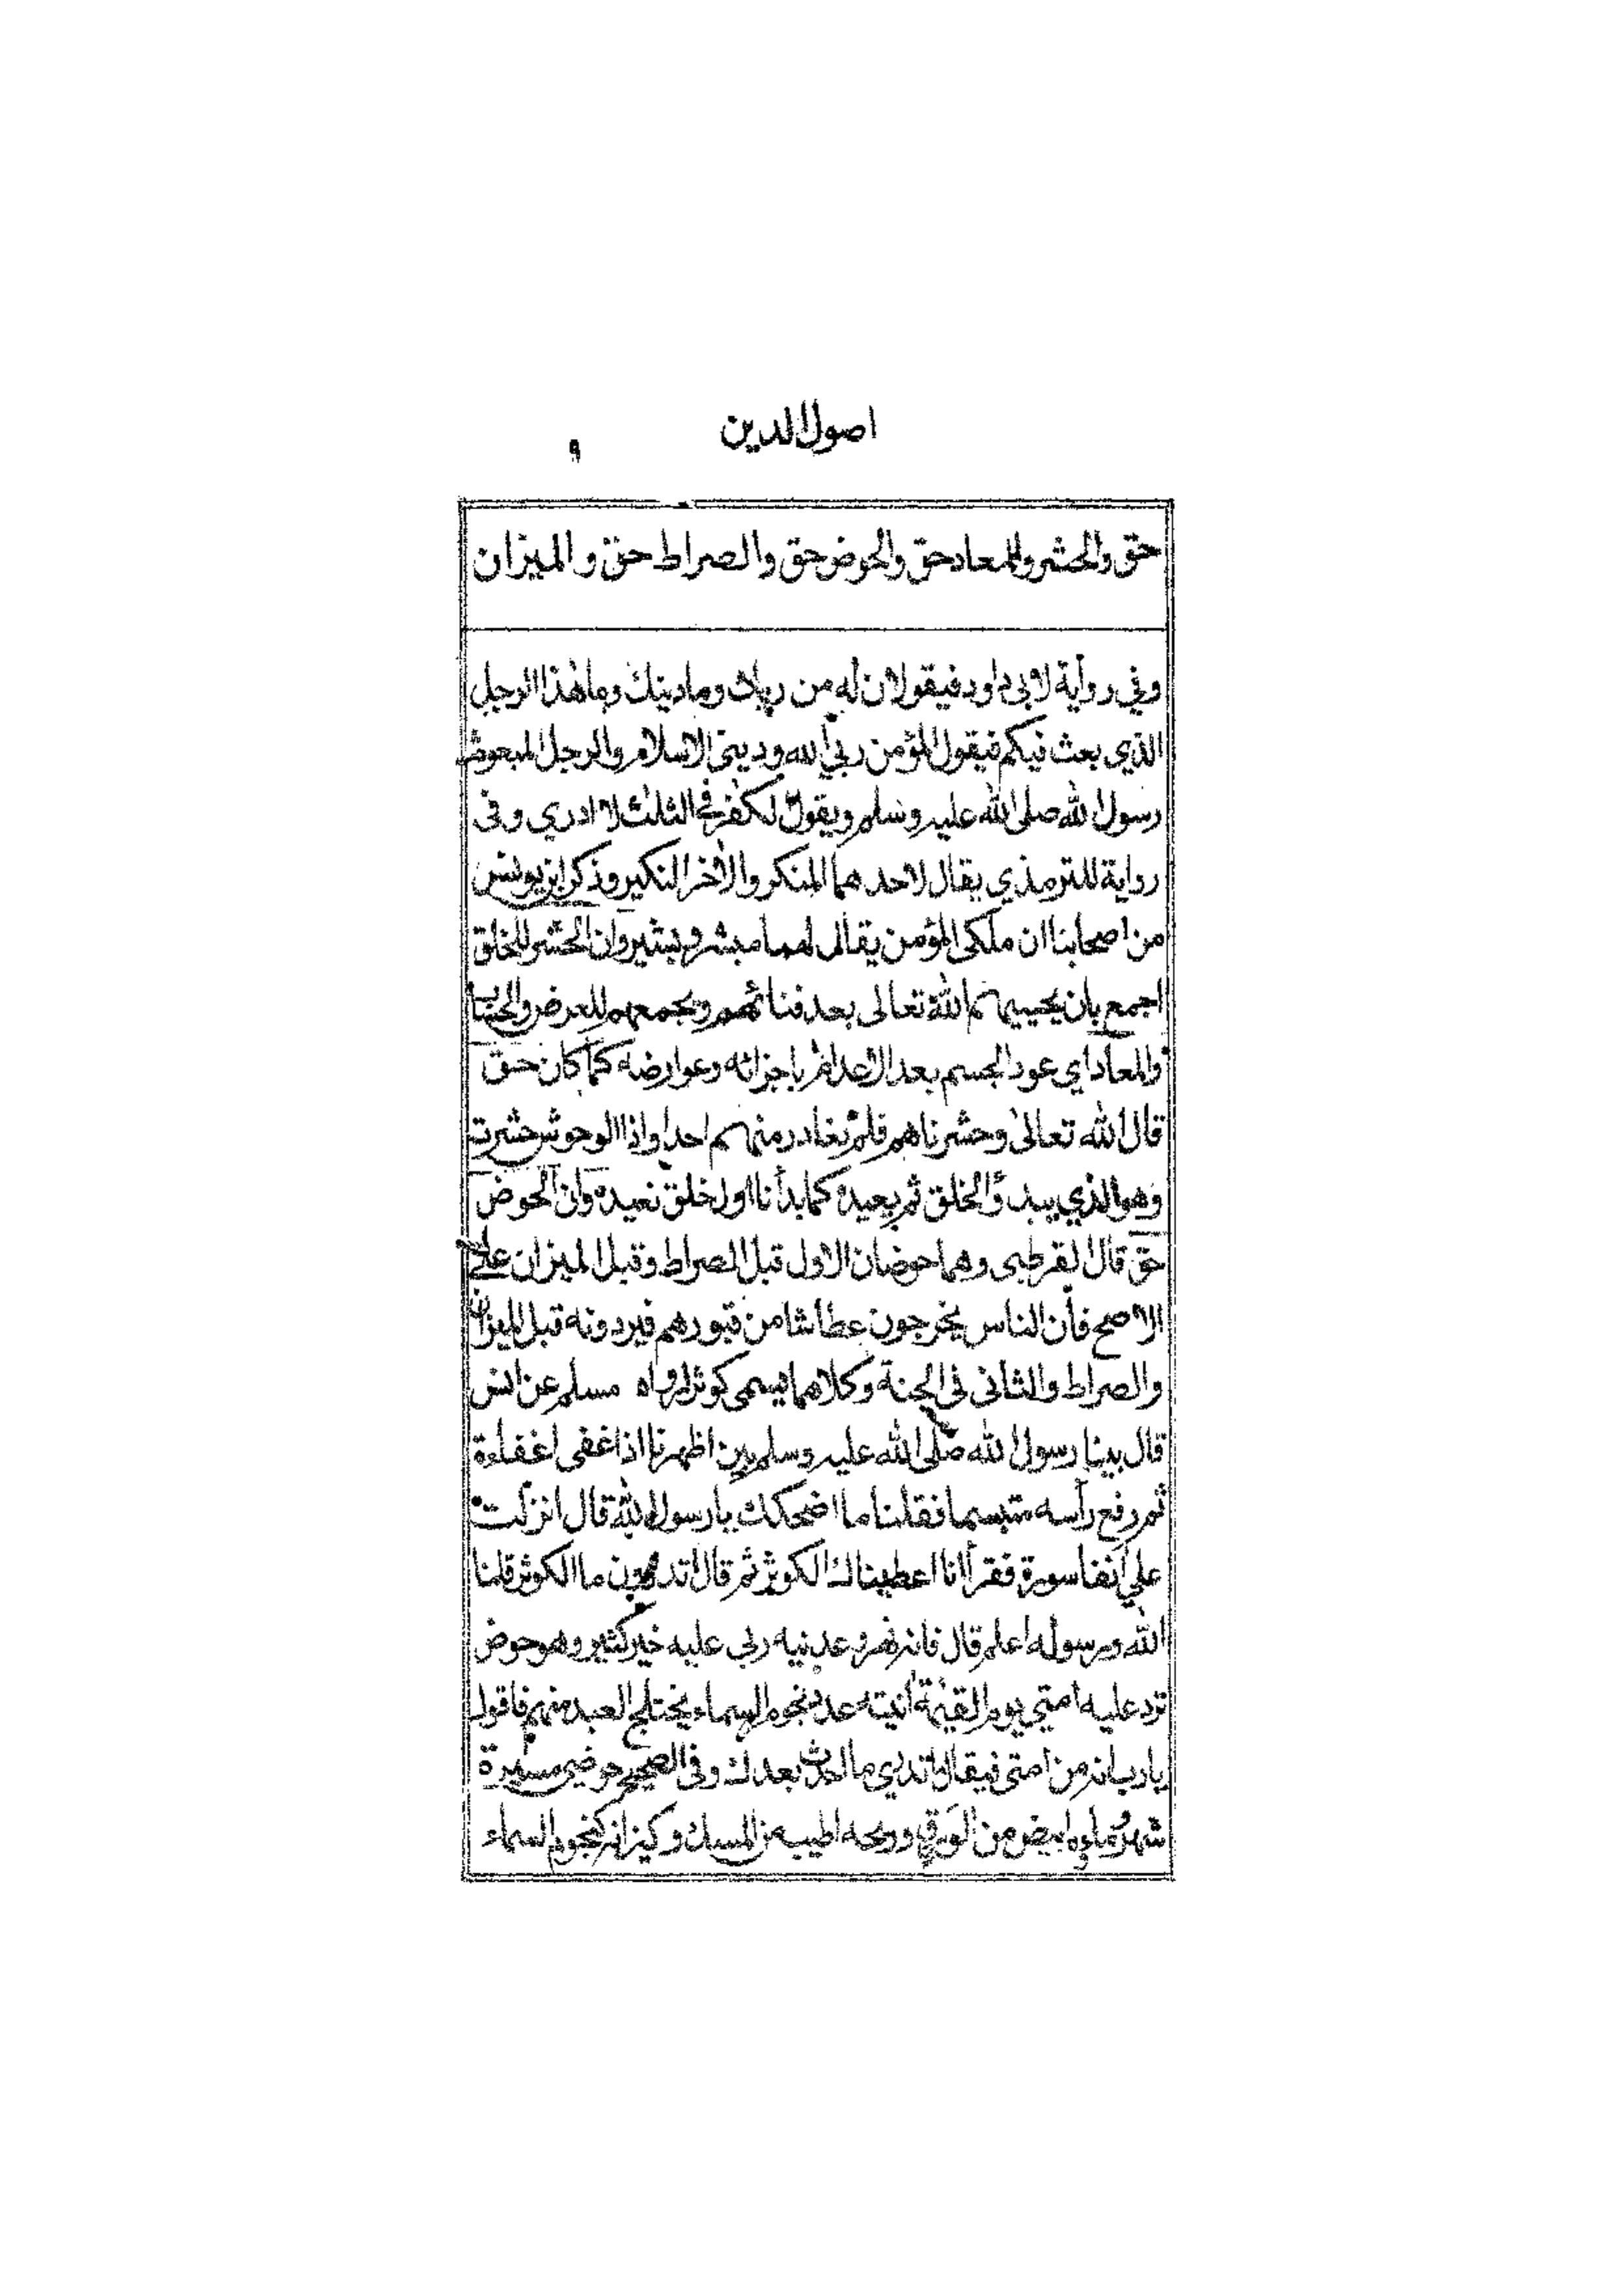 اصول الدين
٩
حق والحشر والمعاد حق والحوض حق والصراط حق والميزان
وفي رواية لابى داود فيقولان له من ربك وما دينك وما هذا الرجل
الذي بعث فيكم فيقول المؤمن ربي الله وديني الاسلام والرجل المبعوث
رسول الله صلى الله عليه وسلم ويقول الكفر في الثلث لا ادري وفى
رواية للترمذي يقال لاحدهما المنكر والأخر النكير وذكر ابن يونس
من اصحابنا ان ملكى المؤمن يقال لهما مبشر وبشير وان الحشر للخلق
اجمع بان يحييهم الله تعالى بعد فنائهم ويجمعهم للعرض والحساب
والمعاد اي عود الجسم بعد الاعدام باجزائه وعوارضه كما كان حق
قال الله تعالى وحشرناهم فلم نغادر منهم احدا واذا الوحوش حشرت
وهو الذي يبدؤ الخلق ثم يعيده كما بدأنا اول خلق نعيده وان الحوض
حق قال القرطبى وهما حوضان الاول قبل الصراط وقبل الميزان على
الاصح فأن الناس يخرجون عطاشا من قبورهم فيردونه قبل الميزان
والصراط والثانى فى الجنة وكلاهما يسمى كوثرا رواه مسلم عن انس
قال بينا رسول الله صلى الله عليه وسلم بين اظهرنا اذ اغفى اغفاءة
ثم رفع رأسه متبسما فقلنا ما اضحكك يا رسول الله قال انزلت
علي آنفا سورة فقرأ انا اعطيناك الكوثر ثم قال اتدرون ما الكوثر قلنا
الله ورسوله اعلم قال فانه نهر وعدنيه ربى عليه خير كثير وهو حوض
ترد عليه امتي يوم القيمة آنيته عدد نجوم السماء يختلج العبد منهم فاقول
يا رب انه من امتى فيقال ما تدري ما احدث بعدك وفى الصحيح حوضى مسيرة
شهر وماؤه ابيض من الورق وريحه اطيب من المسك وكيزانه كنجوم السماء